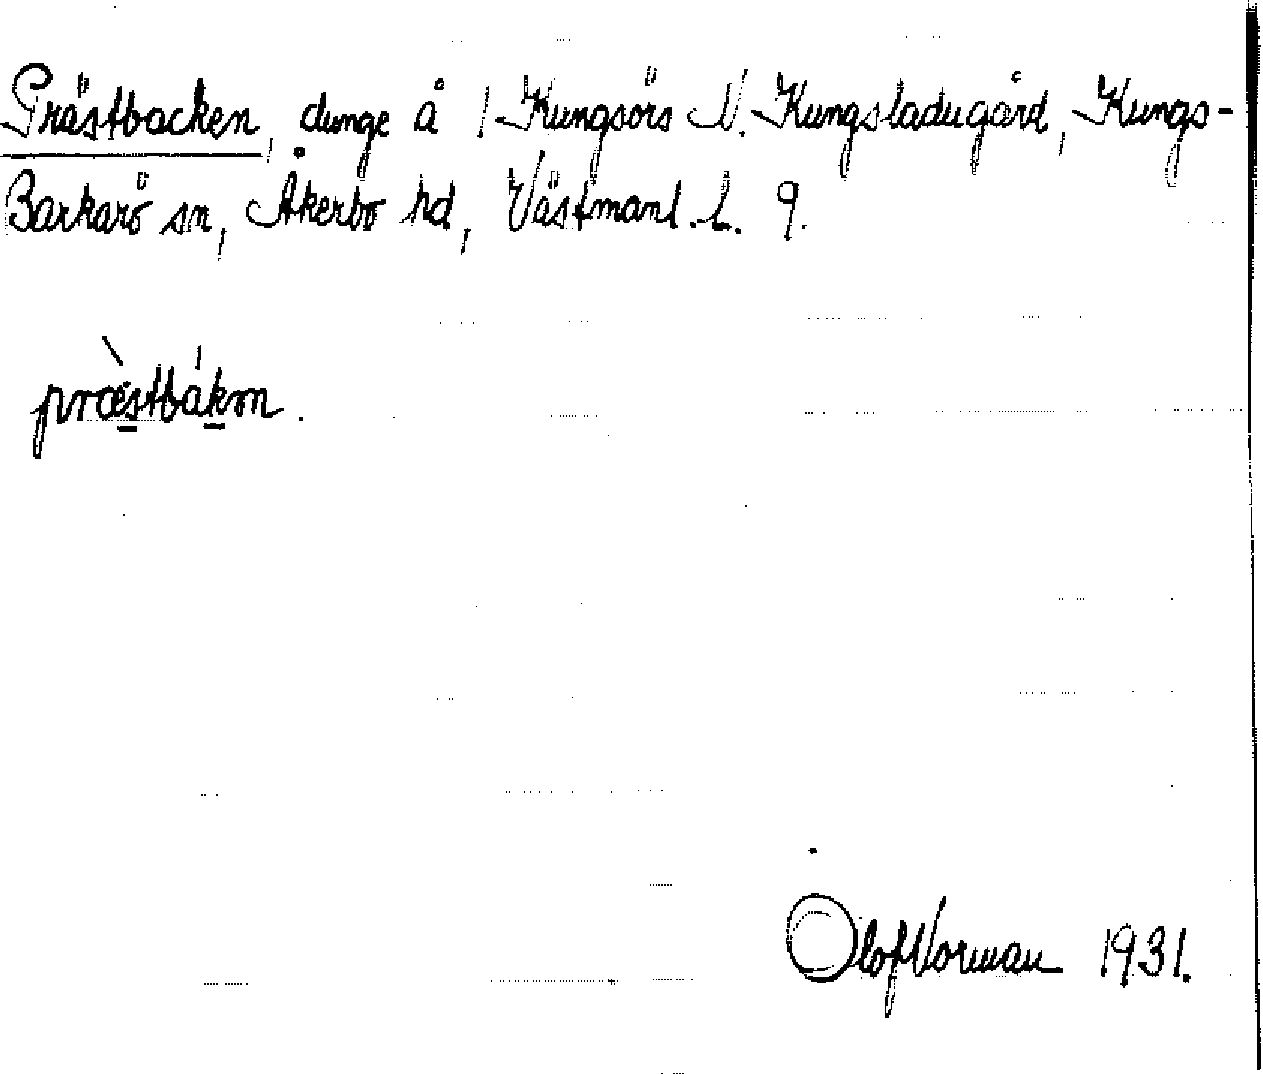 Prästbacken, dunge å 1 Kungsörs N. Kungsladugård, Kungs-
Barkarö sn, Åkerbo hd, Västmanl. l. 9.
præ̀stbákm.
Olof Norman 1931.